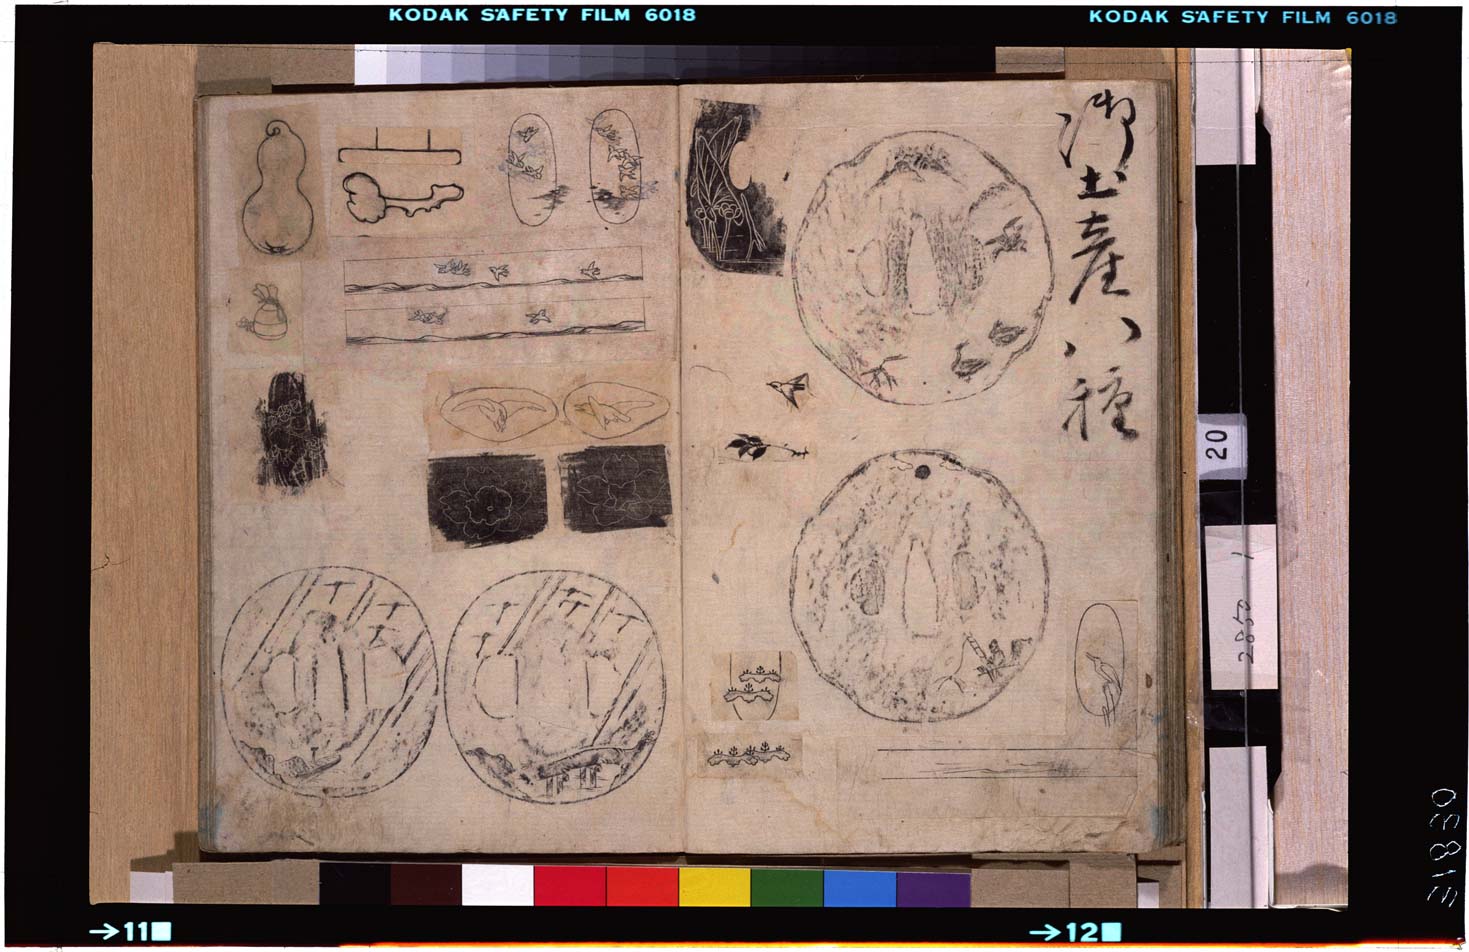 KODAK SAFETY FILM 6018
KODAK SAFETY FILM 6018
御土産八種
20
2850-1
31830
→11
→12